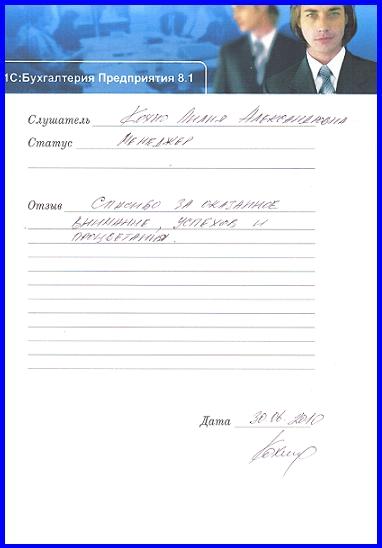 1С:Бухгалтерия Предприятия 8.1
Слушатель Лилия Александровна
Статус Менеджер
Отзыв Спасибо за оказанное
внимание, успехов и
процветания.
Дата 30.06.2010